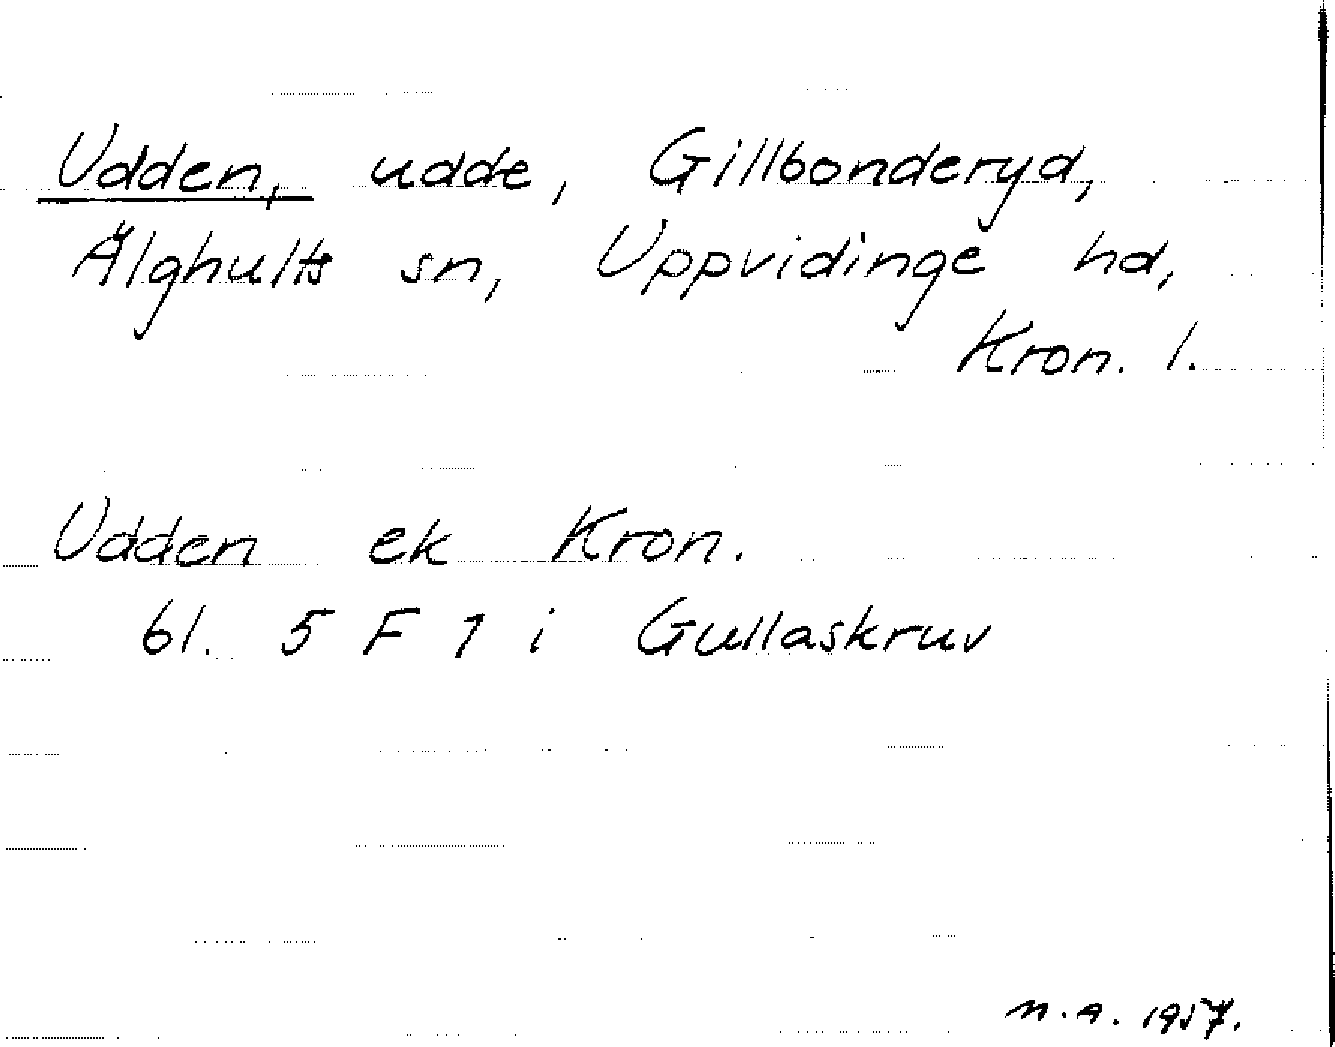 Udden, udde, Gillbonderyd,
Älghults sn, Uppvidinge hd,
Kron. l.
Udden ek Kron.
bl. 5 F 7 i Gullaskruv
n.a. 1957.